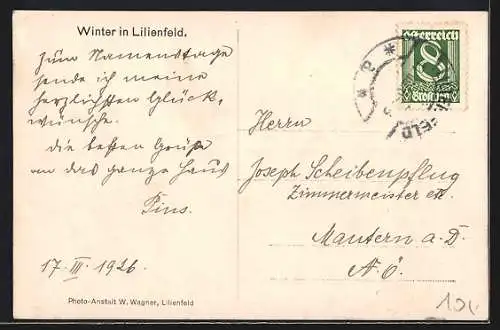 Winter in Lilienfeld.
Zum Namenstage
sende ich meine
herzlichsten Glück-
wünsche.
die besten Grüße
an das ganze Haus
Pius.
17. III. 1926
Photo-Anstalt W. Wagner, Lilienfeld
Österreich
8
Groschen
Herrn
Joseph Scheibenpflug
Zimmermeister etc.
Mautern a. D.
N. Ö.